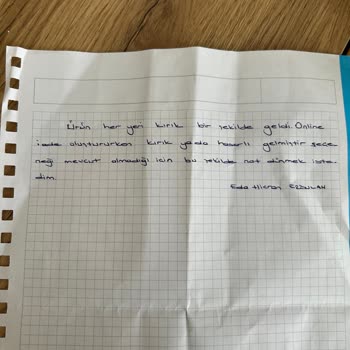 Ürün her yeri kırık bir şekilde geldi. Online
iade oluştururken kırık yada hasarlı gelmiştir seçe
neği mevcut olmadığı için bu şekilde not düşmek iste
dim.
Eda Hicran